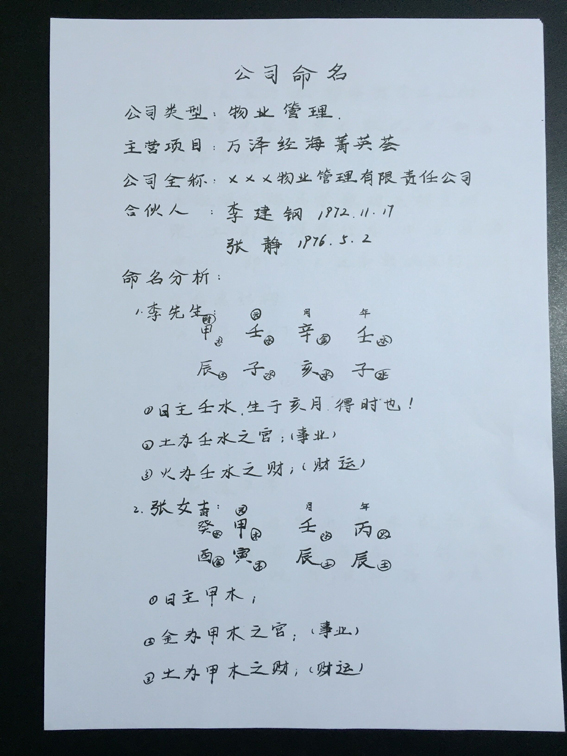 公司命名
公司类型：物业管理.
主营项目：万泽经海菁英荟
公司全称：×××物业管理有限责任公司
合伙人：李建钢 1972.11.17
张静 1976.5.2
命名分析：
1.李先生： 日 月 年
时
甲木 壬水 辛金 壬水
辰土 子水 亥水 子水
①日主壬水，生于亥月，得时也！
②土办壬水之官；（事业）
③火办壬水之财；（财运）
2.张女士： 日 月 年
癸水 甲木 壬水 丙火
酉金 寅木 辰土 辰土
①日主甲木；
②金办甲木之官；（事业）
③土办甲木之财；（财运）